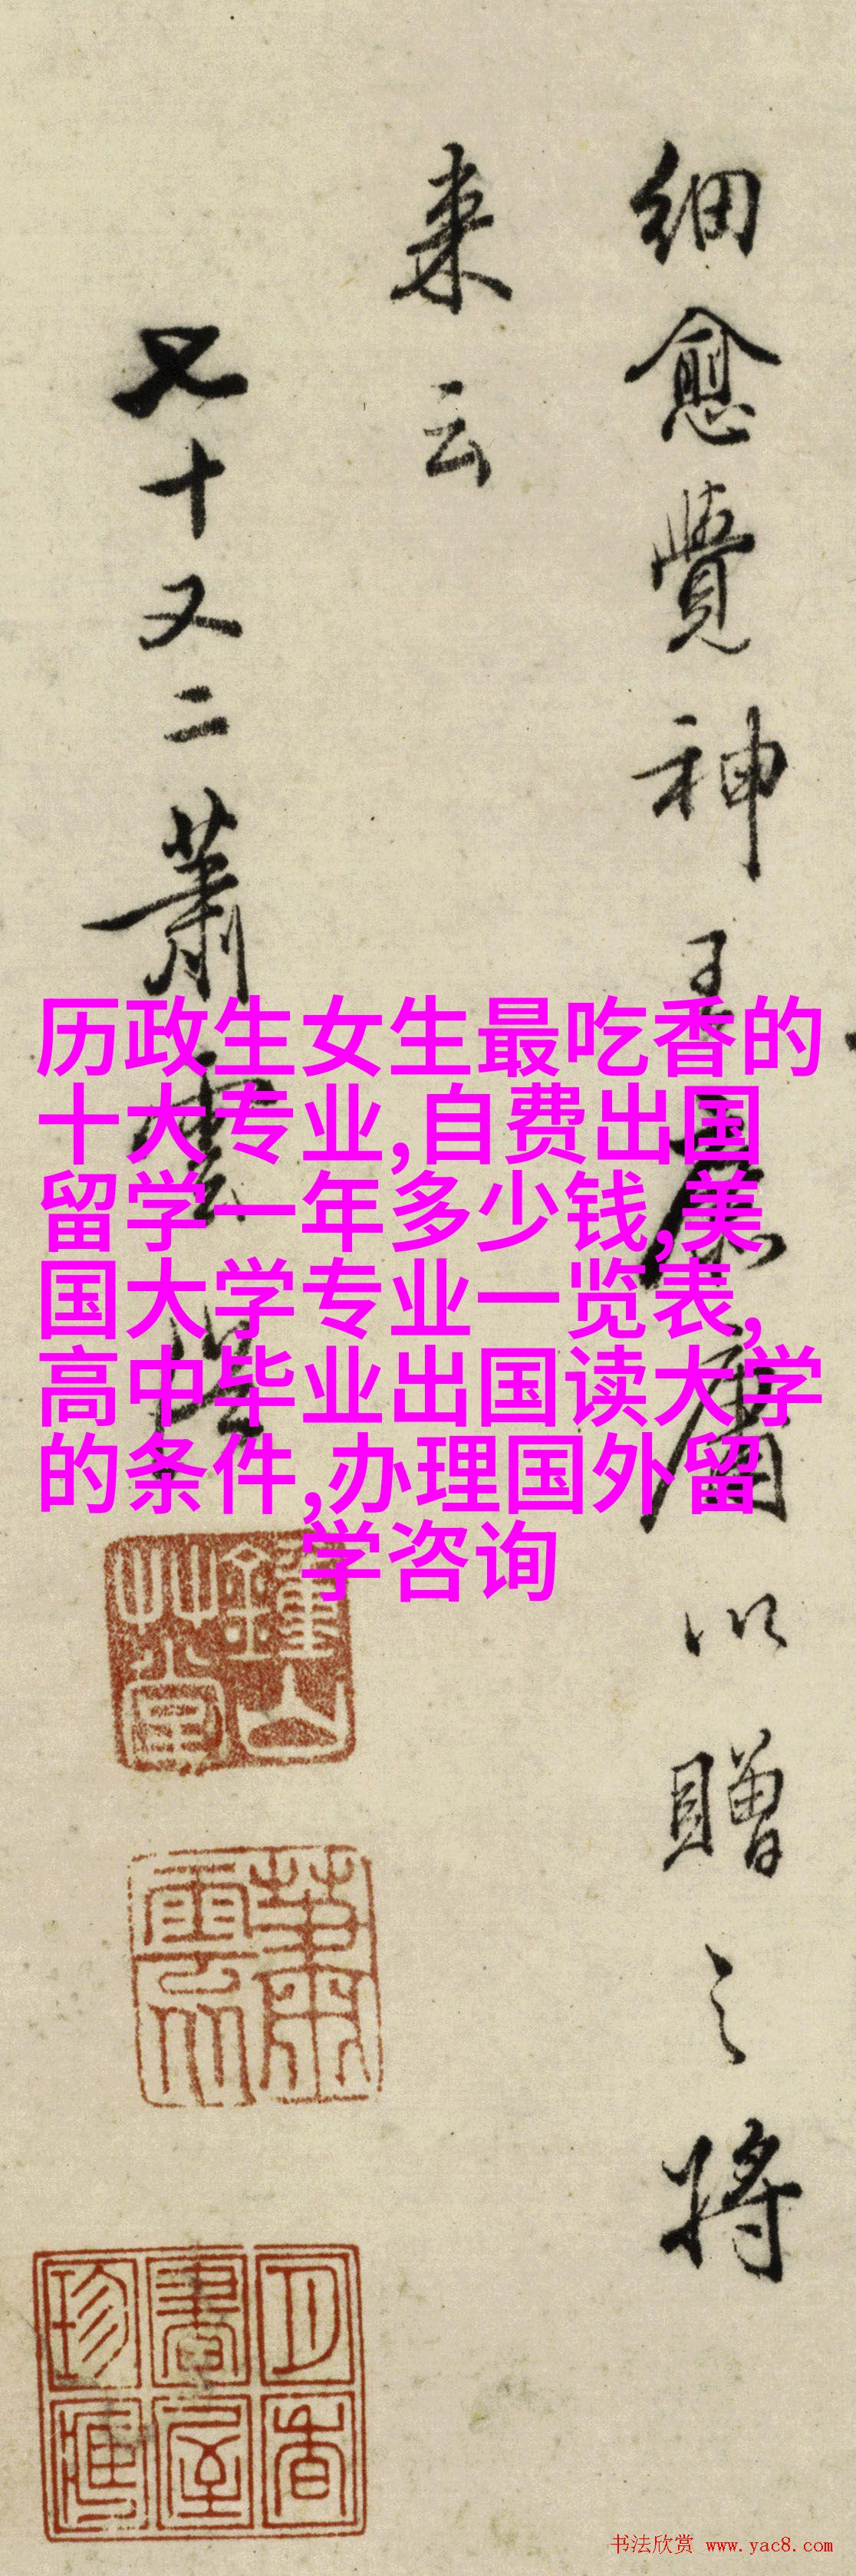 細愈覺神王庸以贈之將
来云
七十又二蕭雲從
历政生女生最吃香的
十大专业,自费出国
留学一年多少钱,美
国大学专业一览表,
高中毕业出国读大学
的条件,办理国外留
学咨询
鍾山
艸堂
蕭
雲從
月香
書屋
珍
书法欣赏 www.yac8.com